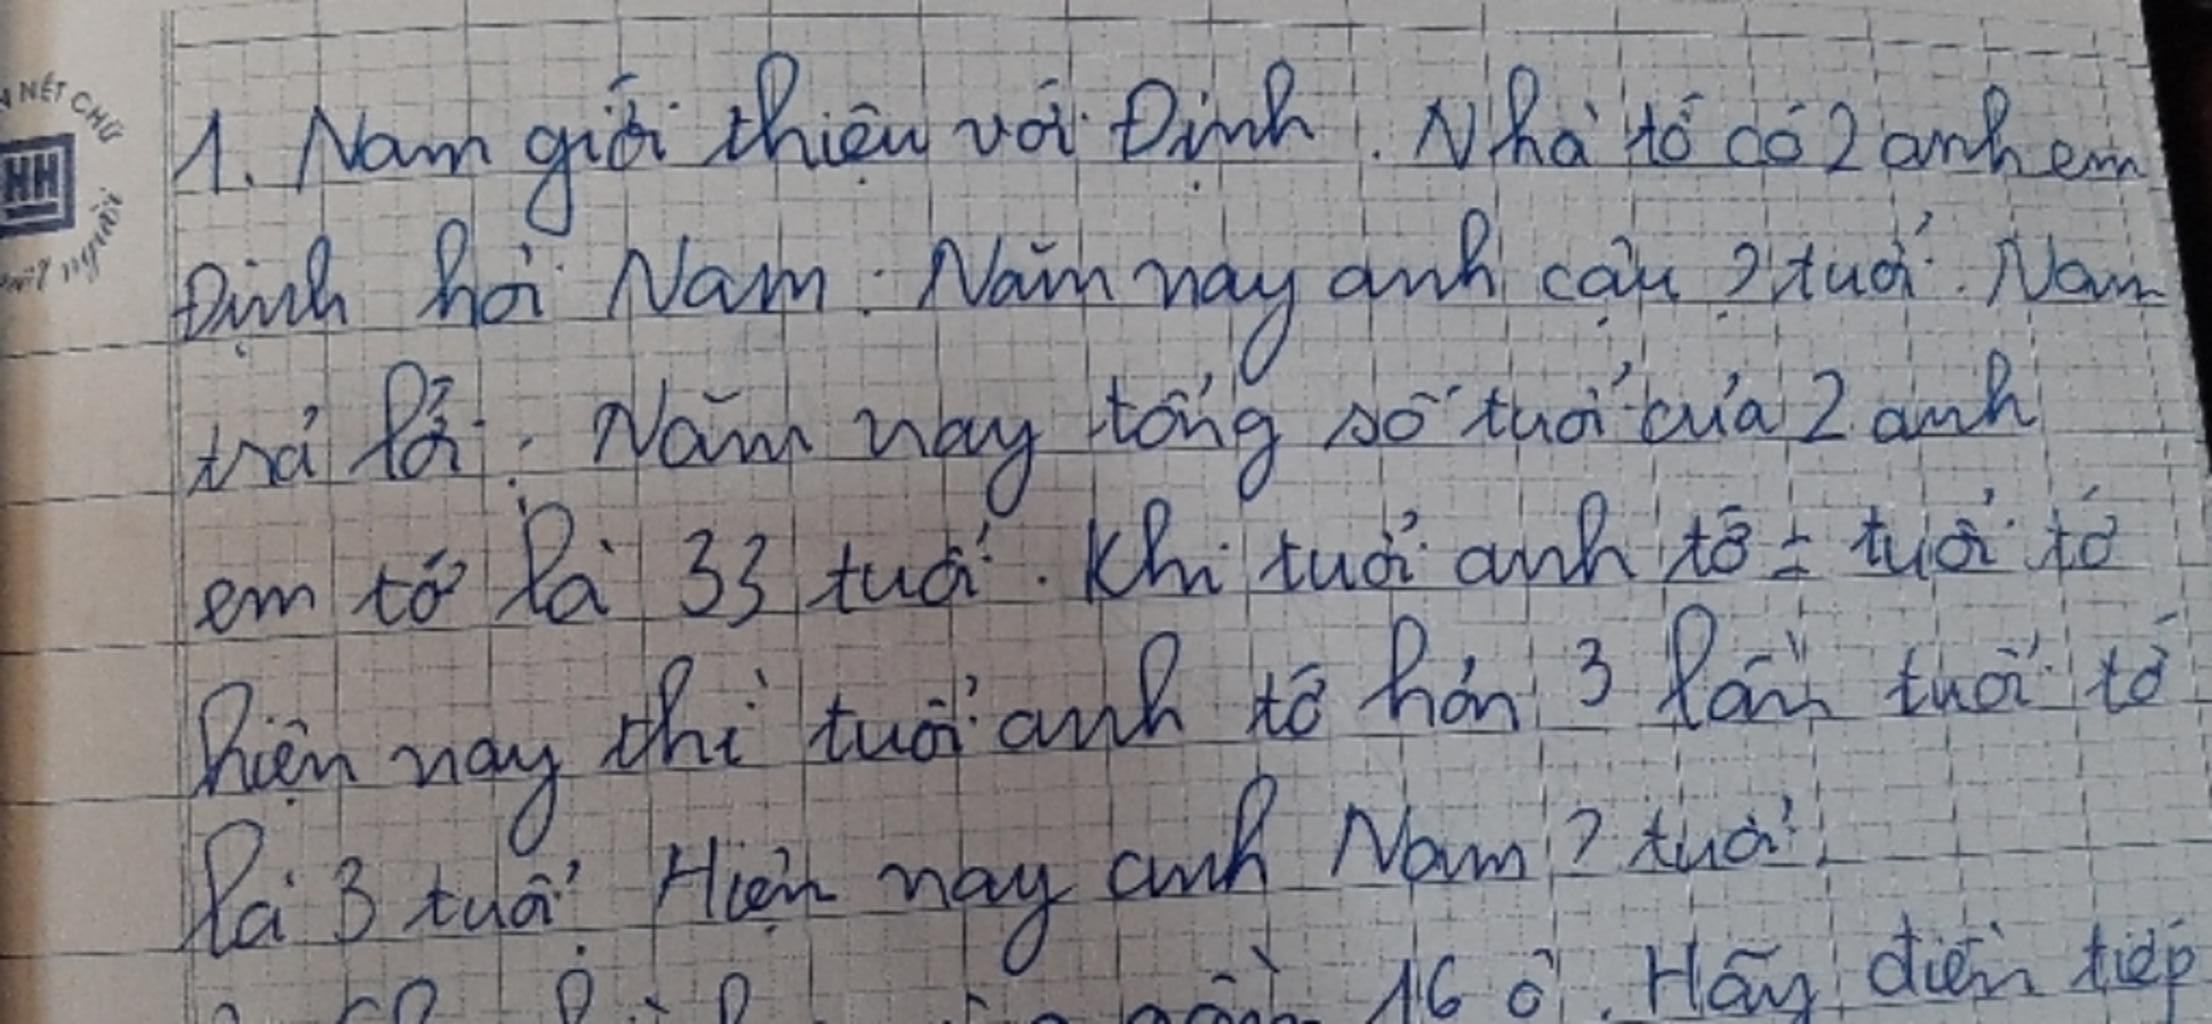 NÉT CHỮ
HH
người
1. Nam giới thiệu với Định. Nhà tớ có 2 anh em
Định hỏi Nam: Năm nay anh cậu ? tuổi. Nam
trả lời: Năm nay tổng số tuổi của 2 anh
em tớ là 33 tuổi. Khi tuổi anh tớ = tuổi tớ
hiện nay thì tuổi anh tớ hơn 3 lần tuổi tớ
là 3 tuổi Hiện nay anh Nam ? tuổi.
16 ô. Hãy điền tiếp